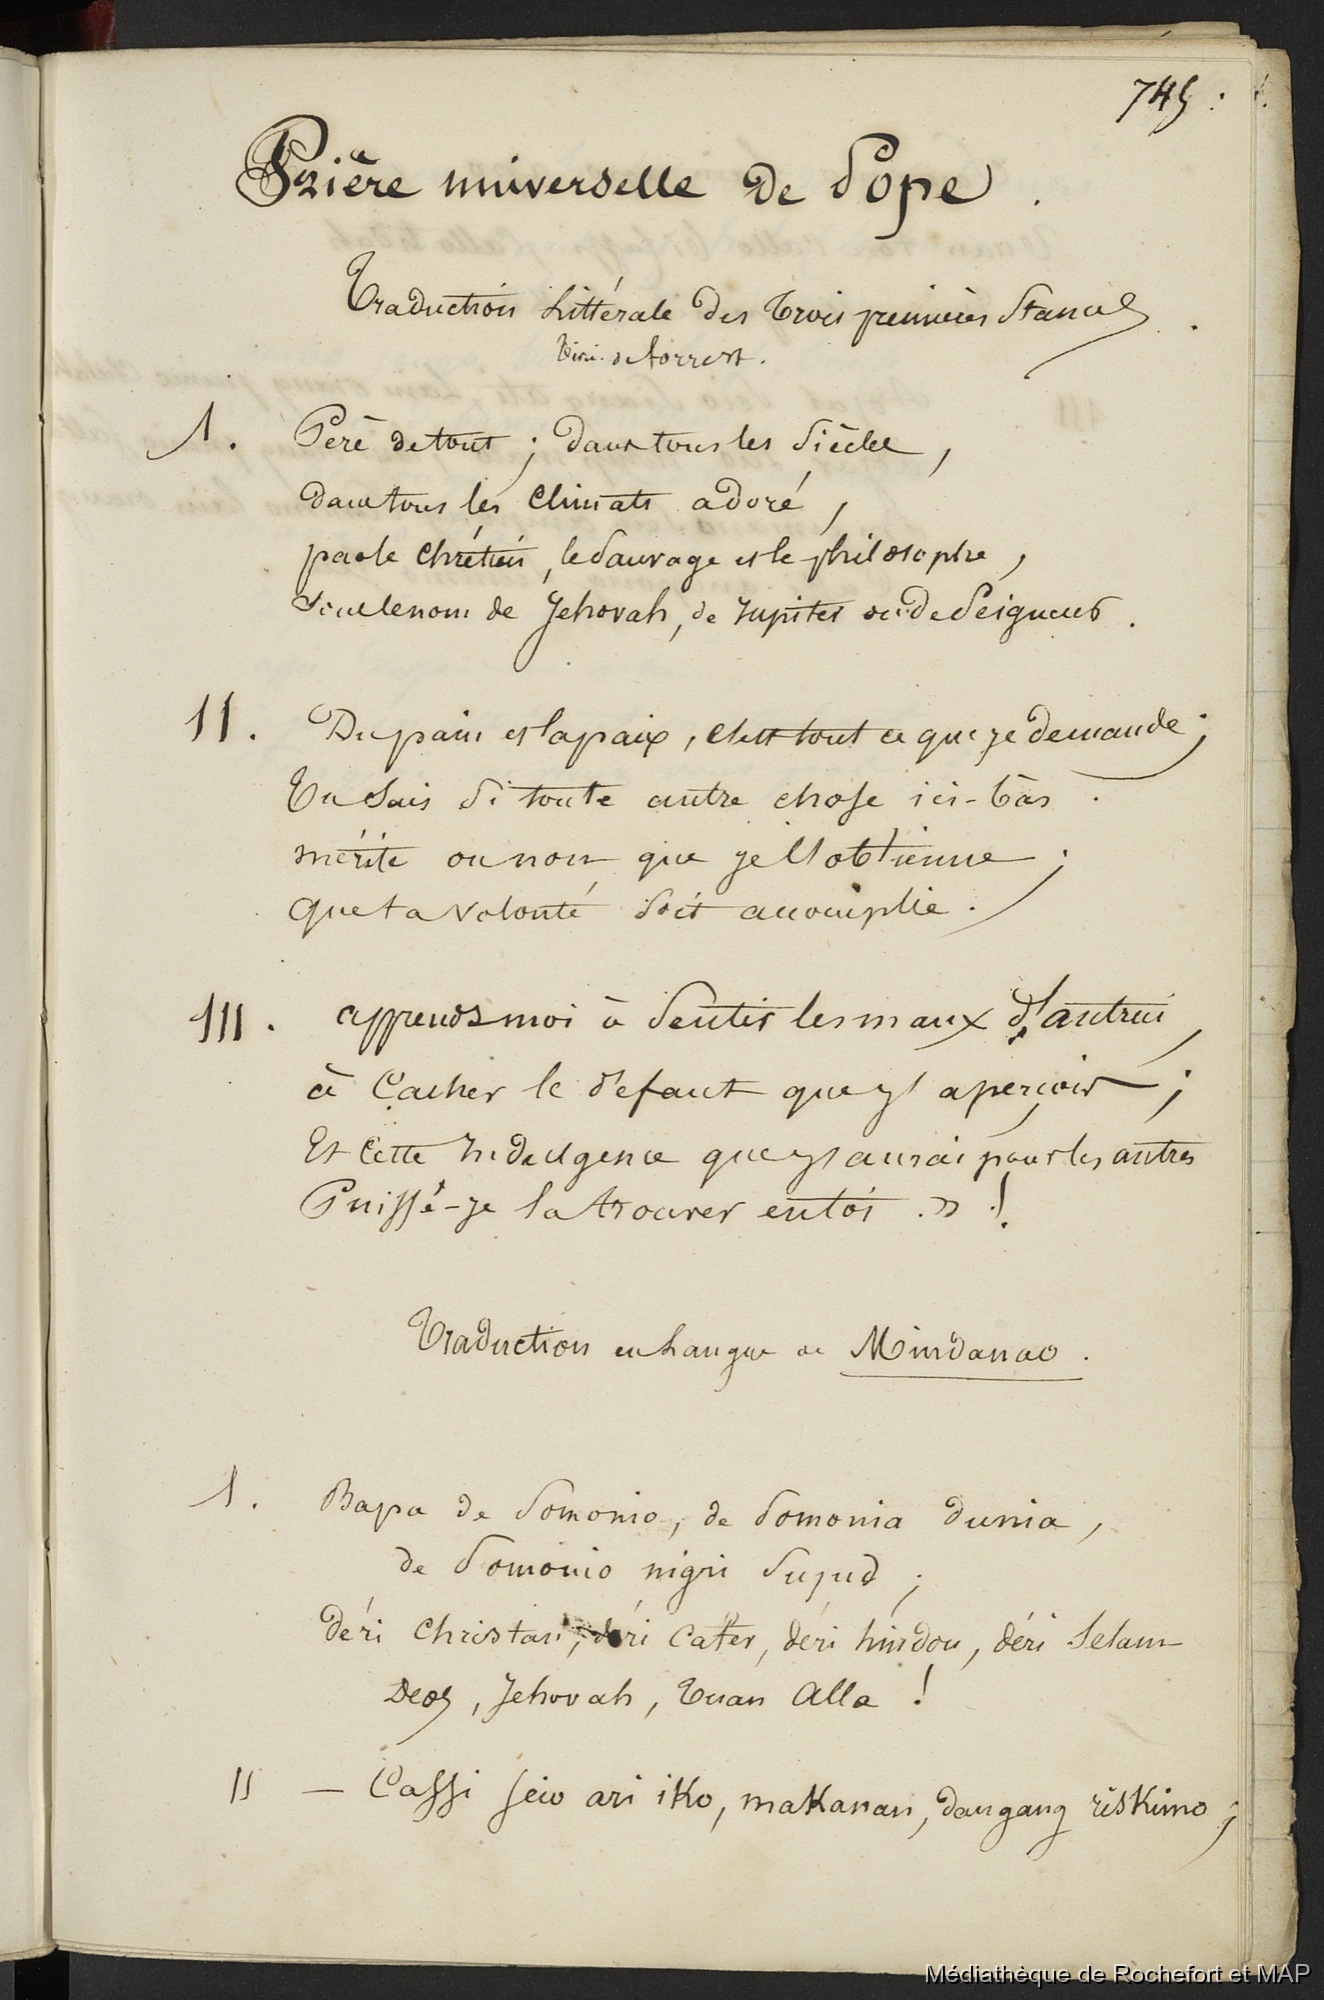 745.
Prière universelle de Pope.
Traduction littérale des trois premières Stances.
tirée de forrest.
1. Père de tout ; dans tous les Siècles,
dans tous les Climats adoré,
par le Chrétien, le Sauvage et le philosophe,
sous le nom de Jehovah, de Jupiter ou de Seigneur.
11. Du pain et la paix, c'est tout ce que je demande ;
Tu Sais Si toute autre chose ici-bas
mérite ou non que je l'obtienne ;
que ta volonté soit accomplie.
111. apprends moi à Sentir les maux d'autrui,
à Cacher le défaut que j'aperçois ;
Et Cette Indulgence que j'aurai pour les autres
Puissé-je la trouver en toi . » !
Traduction en Langue de Mindanao.
1. Bapa de Somonio, de Somonia dunia,
de Somonio nigri Sujud ;
déri Christan, déri Cafer, déri hindou, déri Selam
Deos, Jehovah, Tuan Alla !
11 — Cassi seio ari iko, makanan, dangang riskimo ;
Médiathèque de Rochefort et MAP